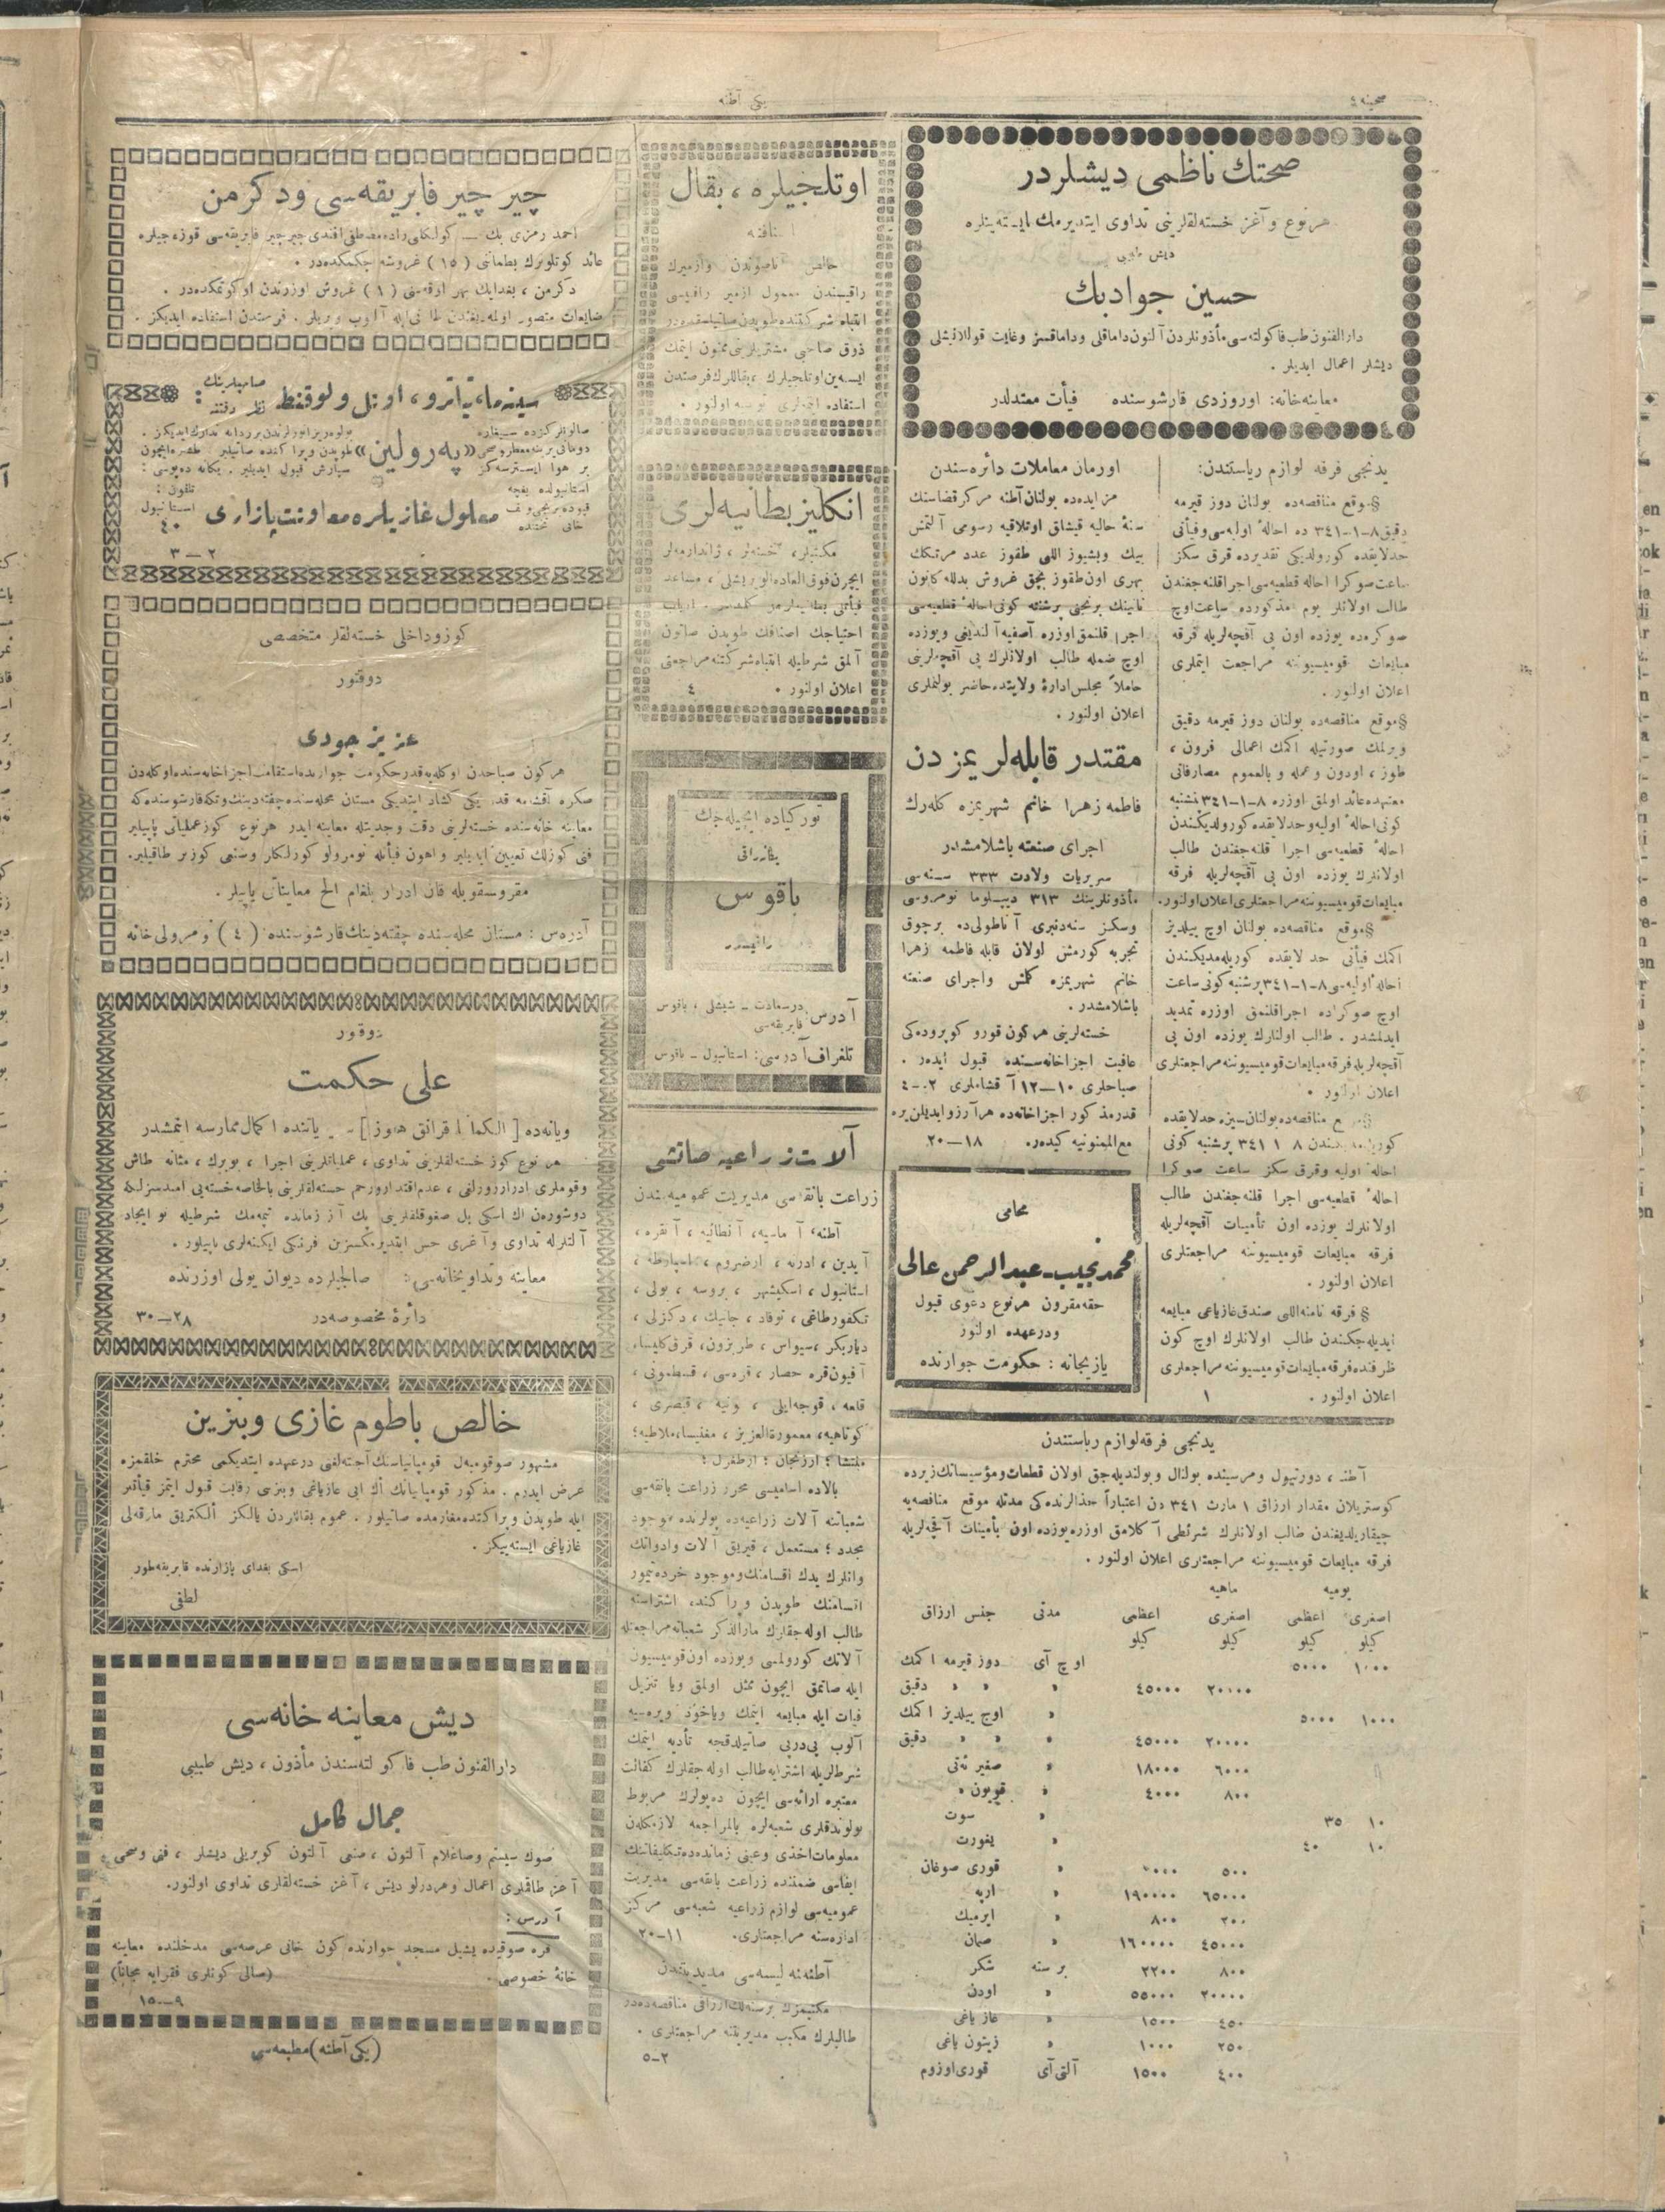 صحیفه ٤
یكی آطنه
صحتك ناظمی دیشلردر
هر نوع و آغز خسته‌لقلرینی تداوی ایتدیرمك ایسته‌ینلره
دیش طبیبی
حسین جواد بك
دارالفنون طب فاكولته‌سی مأذونلردن آلتون داماقلی و داماقسز و غایت قوللانیشلی
دیشلر اعمال ایدیلر .
معاینه‌خانه: اوروزدی قارشوسنده فیأت معتدلدر
یدنجی فرقه لوازم ریاستندن:
§ موقع مناقصه‌ده بولنان دوز قیرمه
دقیق ٨-١-٣٤١ ده احالهٔ اولیه‌سی و فیأتی
حد لایقده كورولدیكی تقدیرده قرق سكز
ساعت صوكرا احالهٔ قطعیه‌سی اجرا قلنه‌جغندن
طالب اولانلر یوم مذكورده ساعت اوچ
صوكره‌ده یوزده اون پی آقچه‌لریله فرقه
مبایعات قومیسیوننه مراجعت ایتملری
اعلان اولنور .
§ موقع مناقصه‌ده بولنان دوز قیرمه دقیق
ویرلمك صورتیله اكمك اعمالی فرون ،
طوز ، اودون و عمله و بالعموم مصارفاتی
متعهده عائد اولمق اوزره ٨-١-٣٤١ پنجشنبه
كونی احالهٔ اولیه و حد لایقده كورولدیكندن
احالهٔ قطعیه‌سی اجرا قلنه‌جغندن طالب
اولانلرك یوزده اون پی آقچه‌لریله فرقه
مبایعات قومیسیوننه مراجعتلری اعلان اولنور.
§ موقع مناقصه‌ده بولنان اوچ ییلدیز
اكمك فیأتی حد لایقده كوریله‌مدیكندن
احالهٔ اولیه‌سی ٨-١-٣٤١ پرشنبه كونی ساعت
اوچ صوكراده اجرا قلنمق اوزره تمدید
ایدلمشدر . طالب اولنلرك یوزده اون پی
آقچه‌لریله فرقه مبایعات قومیسیوننه مراجعتلری
اعلان اولنور .
مناقصه‌ده بولنان حد لایقده
٨ ١ ٣٤١ پرشنبه كونی
احالهٔ اولیه و قرق سكز ساعت صوكرا
احالهٔ قطعیه‌سی اجرا قلنه‌جغندن طالب
اولانلرك یوزده اون تأمینات آقچه‌لریله
فرقه مبایعات قومیسیوننه مراجعتلری
اعلان اولنور .
§ فرقه نامنه اللی صندق غازیاغی مبایعه
ایدیله‌جكندن طالب اولانلرك اوچ كون
ظرفنده فرقه مبایعات قومیسیوننه مراجعتلری
اعلان اولنور . ١
اورمان معاملات دائره‌سندن
مزایده‌ده بولنان آطنه مركز قضاسنك
سنهٔ حالیه قیشلق اوتلاقیه رسومی آلتمش
بیك وبشیوز اللی طقوز عدد مرتبنك
بهری اون طقوز بچق غروش بدلله كانون
ثانینك برنجی پرشنبه كونی احالهٔ قطعیه‌سی
اجرا قلنمق اوزره آصفیه آلندیغی و یوزده
اوچ ضمله طالب اولانلرك پی آقچه‌لرینی
حاملاً مجلس ادارهٔ ولایتده حاضر بولنملری
اعلان اولنور .
مقتدر قابله‌لریمزدن
فاطمه زهرا خانم شهریمزه كله‌رك
اجرای صنعته باشلامشدر
سریریات ولادت ٣٣٣ سنه‌سی
مأذونلرینك ٣١٣ دیپلوما نومروسی
وسكز سنه‌دنبری آناطولیده برچوق
تجربه كورمش اولان قابله فاطمه زهرا
خانم شهریمزه كلمش واجرای صنعته
باشلامشدر.
خسته‌لرینی هركون قورو كوپروده‌كی
عاقبت اجزاخانه‌سنده قبول ایده‌ر .
صباحلری ١٠-١٢ آقشاملری ٢-٤
قدر مذكور اجزاخانه‌ده هر آرزو ایدیلن یره
مع الممنونیه كیده‌ر. ١٨-٢٠
محامی
محمد نجیب - عبدالرحمن عالی
حقه مقرون هر نوع دعوی قبول
ودرعهده اولنور
یازیخانه : حكومت جوارنده
یدنجی فرقه لوازم ریاستندن
آطنه ، دورتیول و مرسینده بولنان و بولندیله‌جق اولان قطعات و مؤسساتك زیرده
كوستریلان مقدار ارزاق ١ مارت ٣٤١ دن اعتباراً حذالرنده‌كی مدتله موقع مناقصه‌یه
چیقاریلدیغندن طالب اولانلرك شرائطی آكلامق اوزره یوزده اون تأمینات آقچه‌لریله
فرقه مبایعات قومیسیوننه مراجعتلری اعلان اولنور .
یومیه ماهیه
اصغری اعظمی اصغری اعظمی مدتی جنس ارزاق
كیلو كیلو كیلو كیلو
١٠٠٠ ٥٠٠٠ اوچ آی دوز قیرمه اكمك
٢٠٠٠٠ ٤٥٠٠٠ » » » دقیق
١٠٠٠ ٥٠٠٠ » اوچ ییلدیز اكمك
٢٠٠٠٠ ٤٥٠٠٠ » » » دقیق
٦٠٠٠ ١٨٠٠٠ » صغیر اتی
٨٠٠ ٤٠٠٠ » قویون »
١٠ ٣٥ » سوت
١٠ ٤٠ » یغورت
٥٠٠ » قوری صوغان
٦٥٠٠٠ ١٩٠٠٠٠ » آرپه
٢٠٠ ٨٠٠ » ایرمیك
٤٥٠٠٠ ١٦٠٠٠٠ » صمان
٨٠٠ ٢٢٠٠ بر سنه شكر
٢٠٠٠٠ ٥٥٠٠٠ » اودن
٤٥٠ ١٥٠٠ » غاز یاغی
٢٥٠ ١٠٠٠ » زیتون یاغی
٤٠٠ ١٥٠٠ آلتی آی قوری اوزوم
اوتلجیلره ، بقال
اصنافنه
خالص اناصوندن وازمیرك
راقیسندن معمول ازمیر راقیسی
انتباه شركتنده طوپدن صاتیلمقده‌در
ذوق صاحبی مشتریلرینی ممنون ایتمك
ایسته‌ین اوتلجیلرك ، بقاللرك فرصتدن
استفاده ایتملری توصیه اولنور .
انكلیز بطانیه‌لری
مكتبلر ، خسته‌لر ، ژاندارمه‌لر
ایچون فوق العاده الویریشلی ، مساعد
فیأتلی بطانیه‌لر كلمشدر . ارباب
احتیاجك اصنافك طوپدن صاتون
آلمق شرطیله انتباه شركتنه مراجعتی
اعلان اولنور . ٤
توركیاده ایچیله‌جك
یكانه راقی
باقوس
راقیسیدر
آدرس: درسعادت - شیشلی ، باقوس
فابریقه‌سی
تلغراف آدرسی: استانبول - باقوس
آلات زراعیه صاتشی
زراعت بانقه‌سی مدیریت عمومیه‌سندن
آطنه، آماسیه، آنطالیه ، آنقره ،
آیدین ، ادرنه ، ارضروم ، اسپارطه ،
استانبول ، اسكیشهر ، بروسه ، بولی ،
تكفورطاغی ، توقاد ، جانیك ، دكزلی ،
دیاربكر ، سیواس ، طربزون، قرق كلیسا،
آفیون قره حصار ، قره‌سی ، قسطمونی ،
قلعه ، قوجه‌ایلی ، قونیه ، قیصری ،
كوتاهیه، معمورة العزیز ، مغنیسا، ملاطیه،
منتشا ، ارزنجان ، ارطغرل ،
بالاده اسامیسی محرر زراعت بانقه‌سی
شعباتنه آلات زراعیه‌ده بولرنده موجود
مجدد ؛ مستعمل ، قیریق آلات وادواتك
وانلرك یدك اقسامنك وموجود خرده تیمور
اقسامنك طوپدن وپراكنده، اشتراسنه
طالب اوله‌جقلرك مارالذكر شعباته مراجعتله
آلاتك كورولمسی ویوزده اون قومیسیون
ایله صاتمق ایچون ممثل اولمق ویا تنزیل
فیات ایله مبایعه ایتمك ویاخود ویره‌سیه
آلوب پی درپی صاتیلدقجه تأدیه ایتمك
شرطلریله اشترایه طالب اوله‌جقلرك كفالت
معتبره ارائه‌سی ایچون ده‌پولرك مربوط
بولوندقلری شعبه‌لره بالمراجعه لازمكلن
معلومات اخذی وعینی زمانده‌ده تكلیفاتنك
ایفاسی ضمننده زراعت بانقه‌سی مدیریت
عمومیه‌سی لوازم زراعیه شعبه‌سی مركز
اداره‌سنه مراجعتلری. ١١-٢٠
آطنه‌نه لیسه‌سی مدیریتندن
مكتبمزك برسنه‌لك ارزاقی مناقصه‌ده‌در
طالبلرك مكتب مدیریتنه مراجعتلری .
٢-٥
چیر چیر فابریقه‌سی ودكرمن
احمد رمزی بك — كولكلی زاده مصطفی افندی چیرچیر فابریقه‌سی قوزه‌جیلره
عائد كوتلونرك بطمانی (١٥) غروشه چكمكده‌در .
دكرمن ، بغدایك بهر اوقه‌سنی (١) غروش اوزرندن اوكوتمكده‌در .
ضایعات متصور اولمه‌دیغندن طارتی ایله آلوب ویریلر . فرصتدن استفاده ایدیكز .
سینه‌ما، تیاترو ، اوتل ولوقنطه صاحبلرینك نظر دقتنه :
صالونلركزده سیغاره
دومانی یرینه معطر و صحی
بر هوا ایسترسه‌كز
«په‌رولین»
طوپدن وپراكنده صاتیلیر . طشره ایچون
سپارش قبول ایدیلیر . یكانه ده‌پوسی :
استانبولده یغجه
قپوده برنجی وقف
خانی تحتنده
معلول غازیلره معاونت پازاری
تلفون :
استانبول
٤٠
٢-٣
كوز وداخلی خسته‌لقلر متخصصی
دوقتور
عزیز جودی
هركون صباحدن اوكله‌یه قدر حكومت جوارنده استقامت اجزاخانه‌سنده اوكله‌دن
صكره آقشامه قدر یكی كشاد ایتدیكی مستان محله‌سنده چفته دینك وتكه قارشوسنده‌كه
معاینه خانه‌سنده خسته‌لرینی دقت وجدیتله معاینه ایدر هر نوع كوز عملیاتی یاپیلیر
فنی كوزلك تعیین ایدیلیر واهون فیأتله نومرولو كوزلكلر وصنعی كوزلر طاقیلیر.
مقروسقوپله قان ادرار بلغام الخ معایناتی یاپیلر .
آدره‌س : مستان محله‌سنده چفته دینك قارشوسنده (٤) نومرولی خانه
دوقتور
علی حكمت
ویانه‌ده [الكما ین قرانق هوز] یاننده اكمال ممارسه ایتمشدر
هر نوع كوز خسته‌لقلرینی تداوی ، عملیاتلرینی اجرا ، بوبرك ، مثانه طاش
وقوملری ادرار زورلغی ، عدم اقتدار ورحم خسته‌لقلرینی بالخاصه خسته‌یی امیدسزلكه
دوشورن اك اسكی بل صغوقلقلرینی پك آز زمانده تیمه‌مك شرطیله نو ایجاد
آلتلرله تداوی وآغری حس ایتدیرمكسزین فرنكی ایكنه‌لری یاپیلور .
معاینه وتداویخانه‌سی: صالجیلرده دیوان یولی اوزرنده
دائرهٔ مخصوصه‌در ٢٨-٣٠
خالص باطوم غازی وبنزین
مشهور صوقومپه‌ل قومپانیاسنك آجنته‌لغنی درعهده ایتدیكمی محترم خلقمزه
عرض ایدرم . مذكور قومپانیانك اك ایی غازیاغی وبنزینی رقابت قبول ایتمز فیأتلر
ایله طوپدن وپراكنده مغازه‌مده صاتیلور . عموم بقاللردن یالكز ألكتریق مارقه‌لی
غازیاغی ایسته‌ییكز .
اسكی بغدای پازارنده فابریقه‌طور
لطفی
دیش معاینه خانه‌سی
دارالفنون طب فاكولته‌سندن مأذون ، دیش طبیبی
جمال كامل
صوك سیستم وصاغلام آلتون ، صنعی آلتون كوپریلی دیشلر ، فنی وصحی
آغز طاقملری اعمال وهردرلو دیش ، آغز خسته‌لقلری تداوی اولنور.
آدرس :
قره صوقیده یشیل مسجد جوارنده كون خانی عرصه‌سی مدخلنده معاینه
خانهٔ خصوصی . (صالی كونلری فقرایه مجاناً)
٩-١٥
(یكی آطنه) مطبعه‌سی